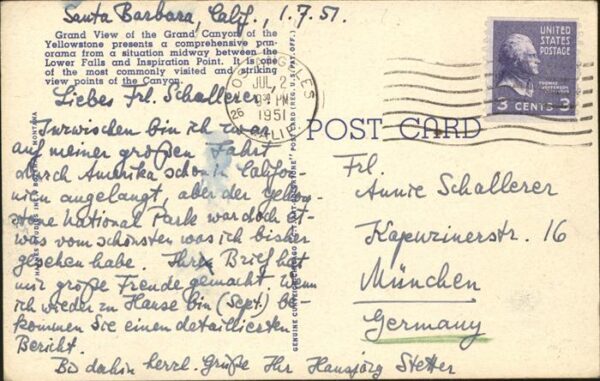 Santa Barbara, Calif., 1.7.51.
Grand View of the Grand Canyon of the
Yellowstone presents a comprehensive pan-
orama from a situation midway between the
Lower Falls and Inspiration Point. It is one
of the most commonly visited and striking
view points of the Canyon.
Liebes Frl. Schallerer
Inzwischen bin ich zwar
auf meiner großen Fahrt
durch Amerika schon in Califor-
nien angelangt, aber der Yellow-
stone National Park war doch et-
was vom schönsten was ich bisher
gesehen habe. Ihr Brief hat
mir große Freude gemacht. Wenn
ich wieder zu Hause bin (Sept.) be-
kommen Sie einen detaillierten
Bericht.
Bis dahin herzl. Grüße Ihr Hansjörg Stetter
JUL 2
PM
1951
CALIF
26
UNITED
STATES
POSTAGE
THOMAS JEFFERSON
3 CENTS 3
POST CARD
Frl.
Annie Schallerer
Kapuzinerstr. 16
München
Germany